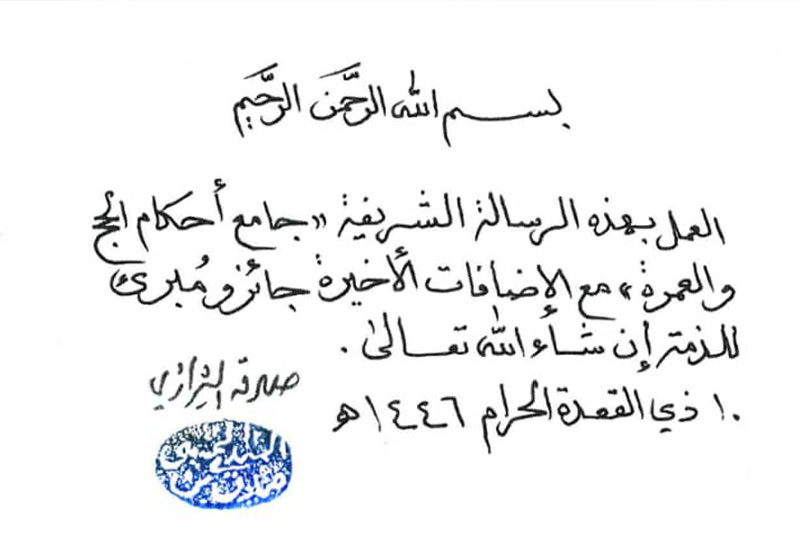 بســـم الله الرَّحمٰن الرَّحيم
العمل بهذه الرسالة الشريفة «جامع أحكام الحج
والعمرة» مع الإضافات الأخيرة جائز ومُبرئ
للذمة إن شاء الله تعالىٰ.
صادق الشيرازي
١٠ ذي القعدة الحرام ١٤٤٦هـ